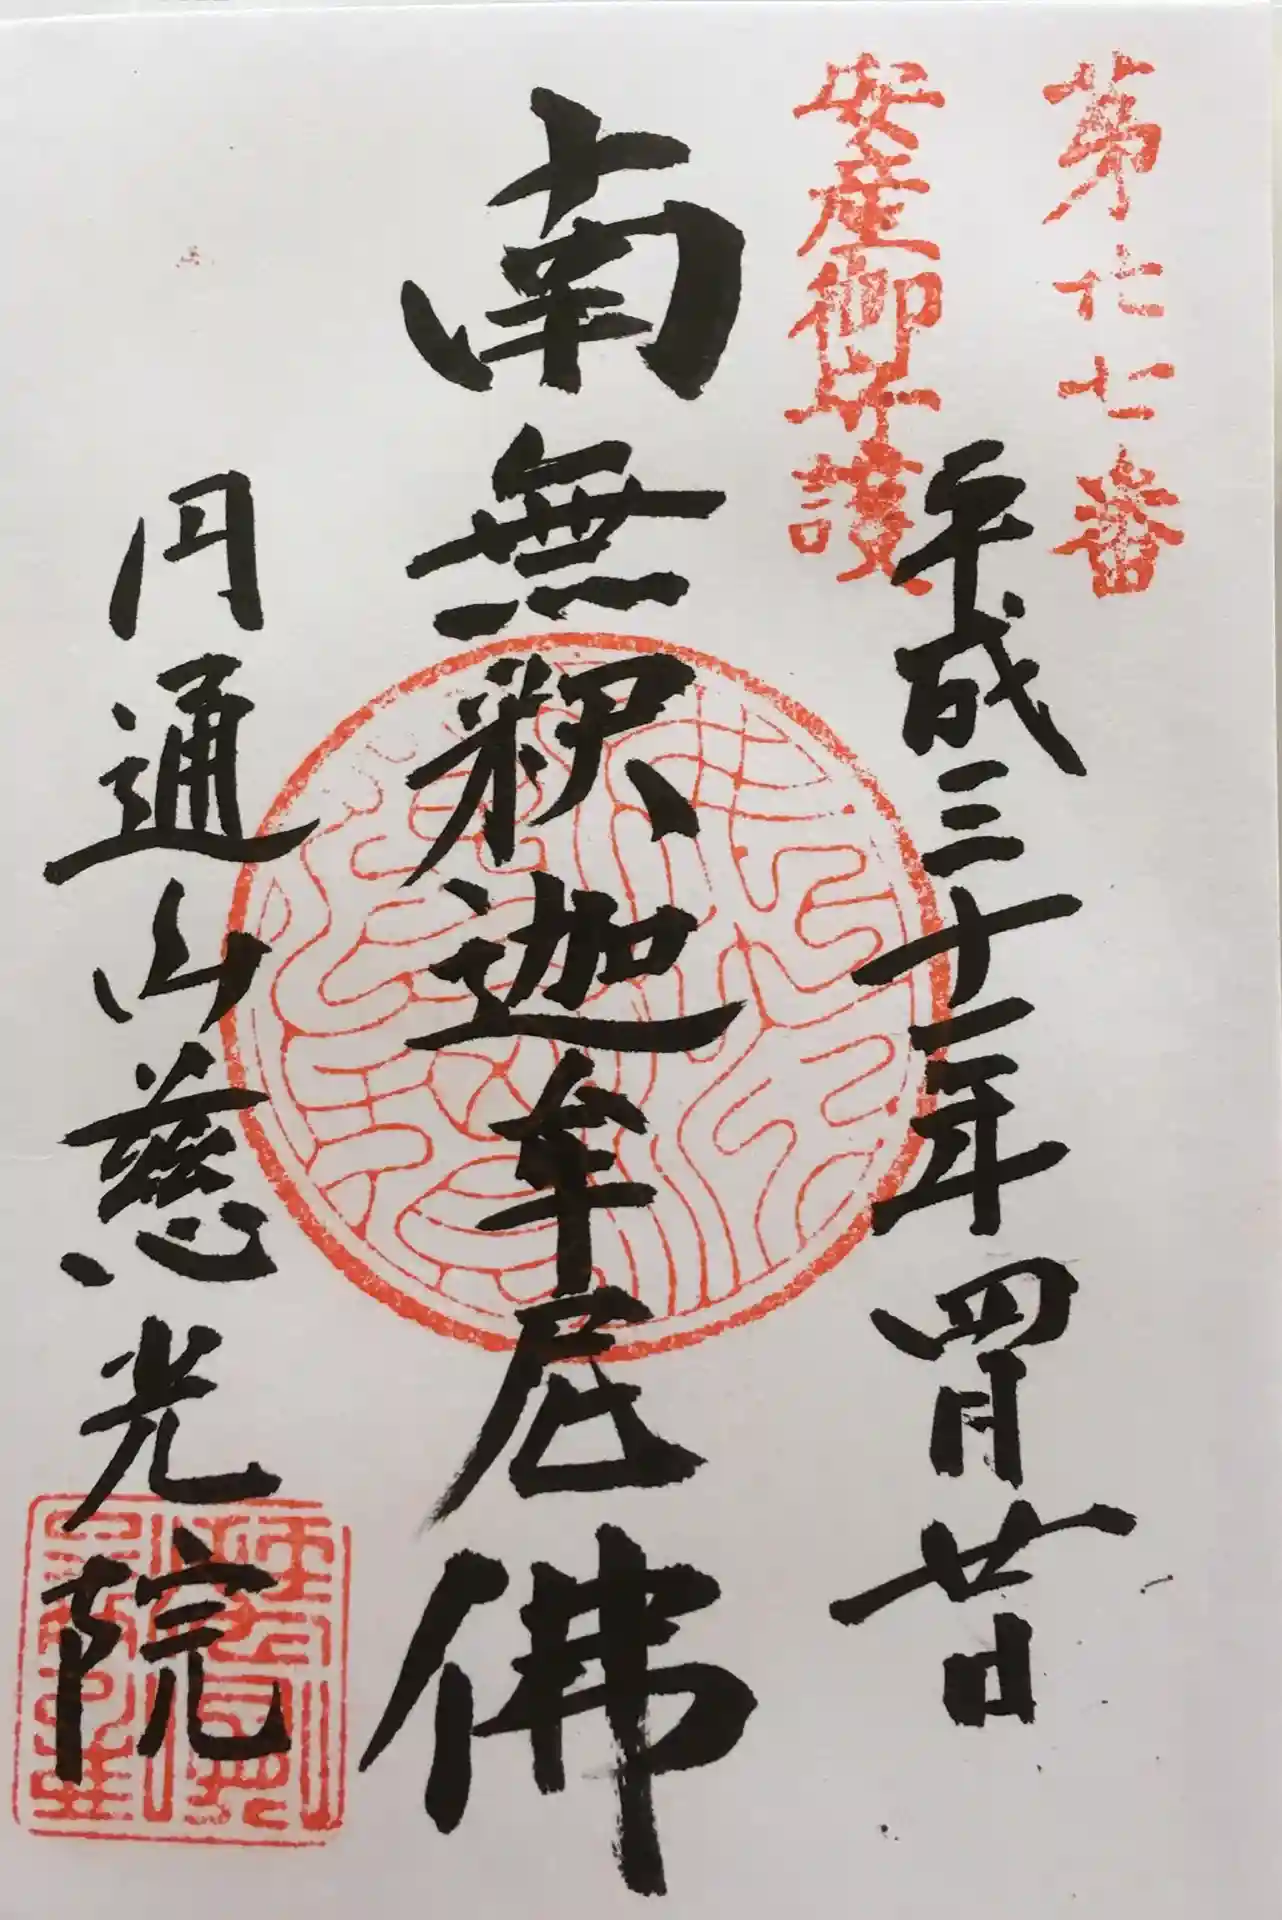 第廿七番
安産御守護
平成三十一年四月廿日
南無釈迦牟尼佛
円通山慈光院